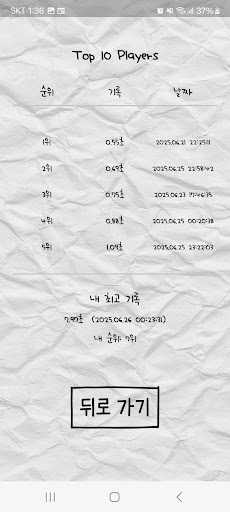 SKT 1:36
37%
Top 10 Players
순위 기록 날짜
1위 0.55초 2025.06.21
2위 0.69초 2025.06.25 22:58:42
3위 0.75초 2025.06.23 17:46:35
4위 0.88초 2025.06.25 00:20:38
5위 1.09초 2025.06.25 23:22:03
내 최고 기록
7.97초 (2025.06.26 00:23:31)
내 순위: 7위
뒤로 가기